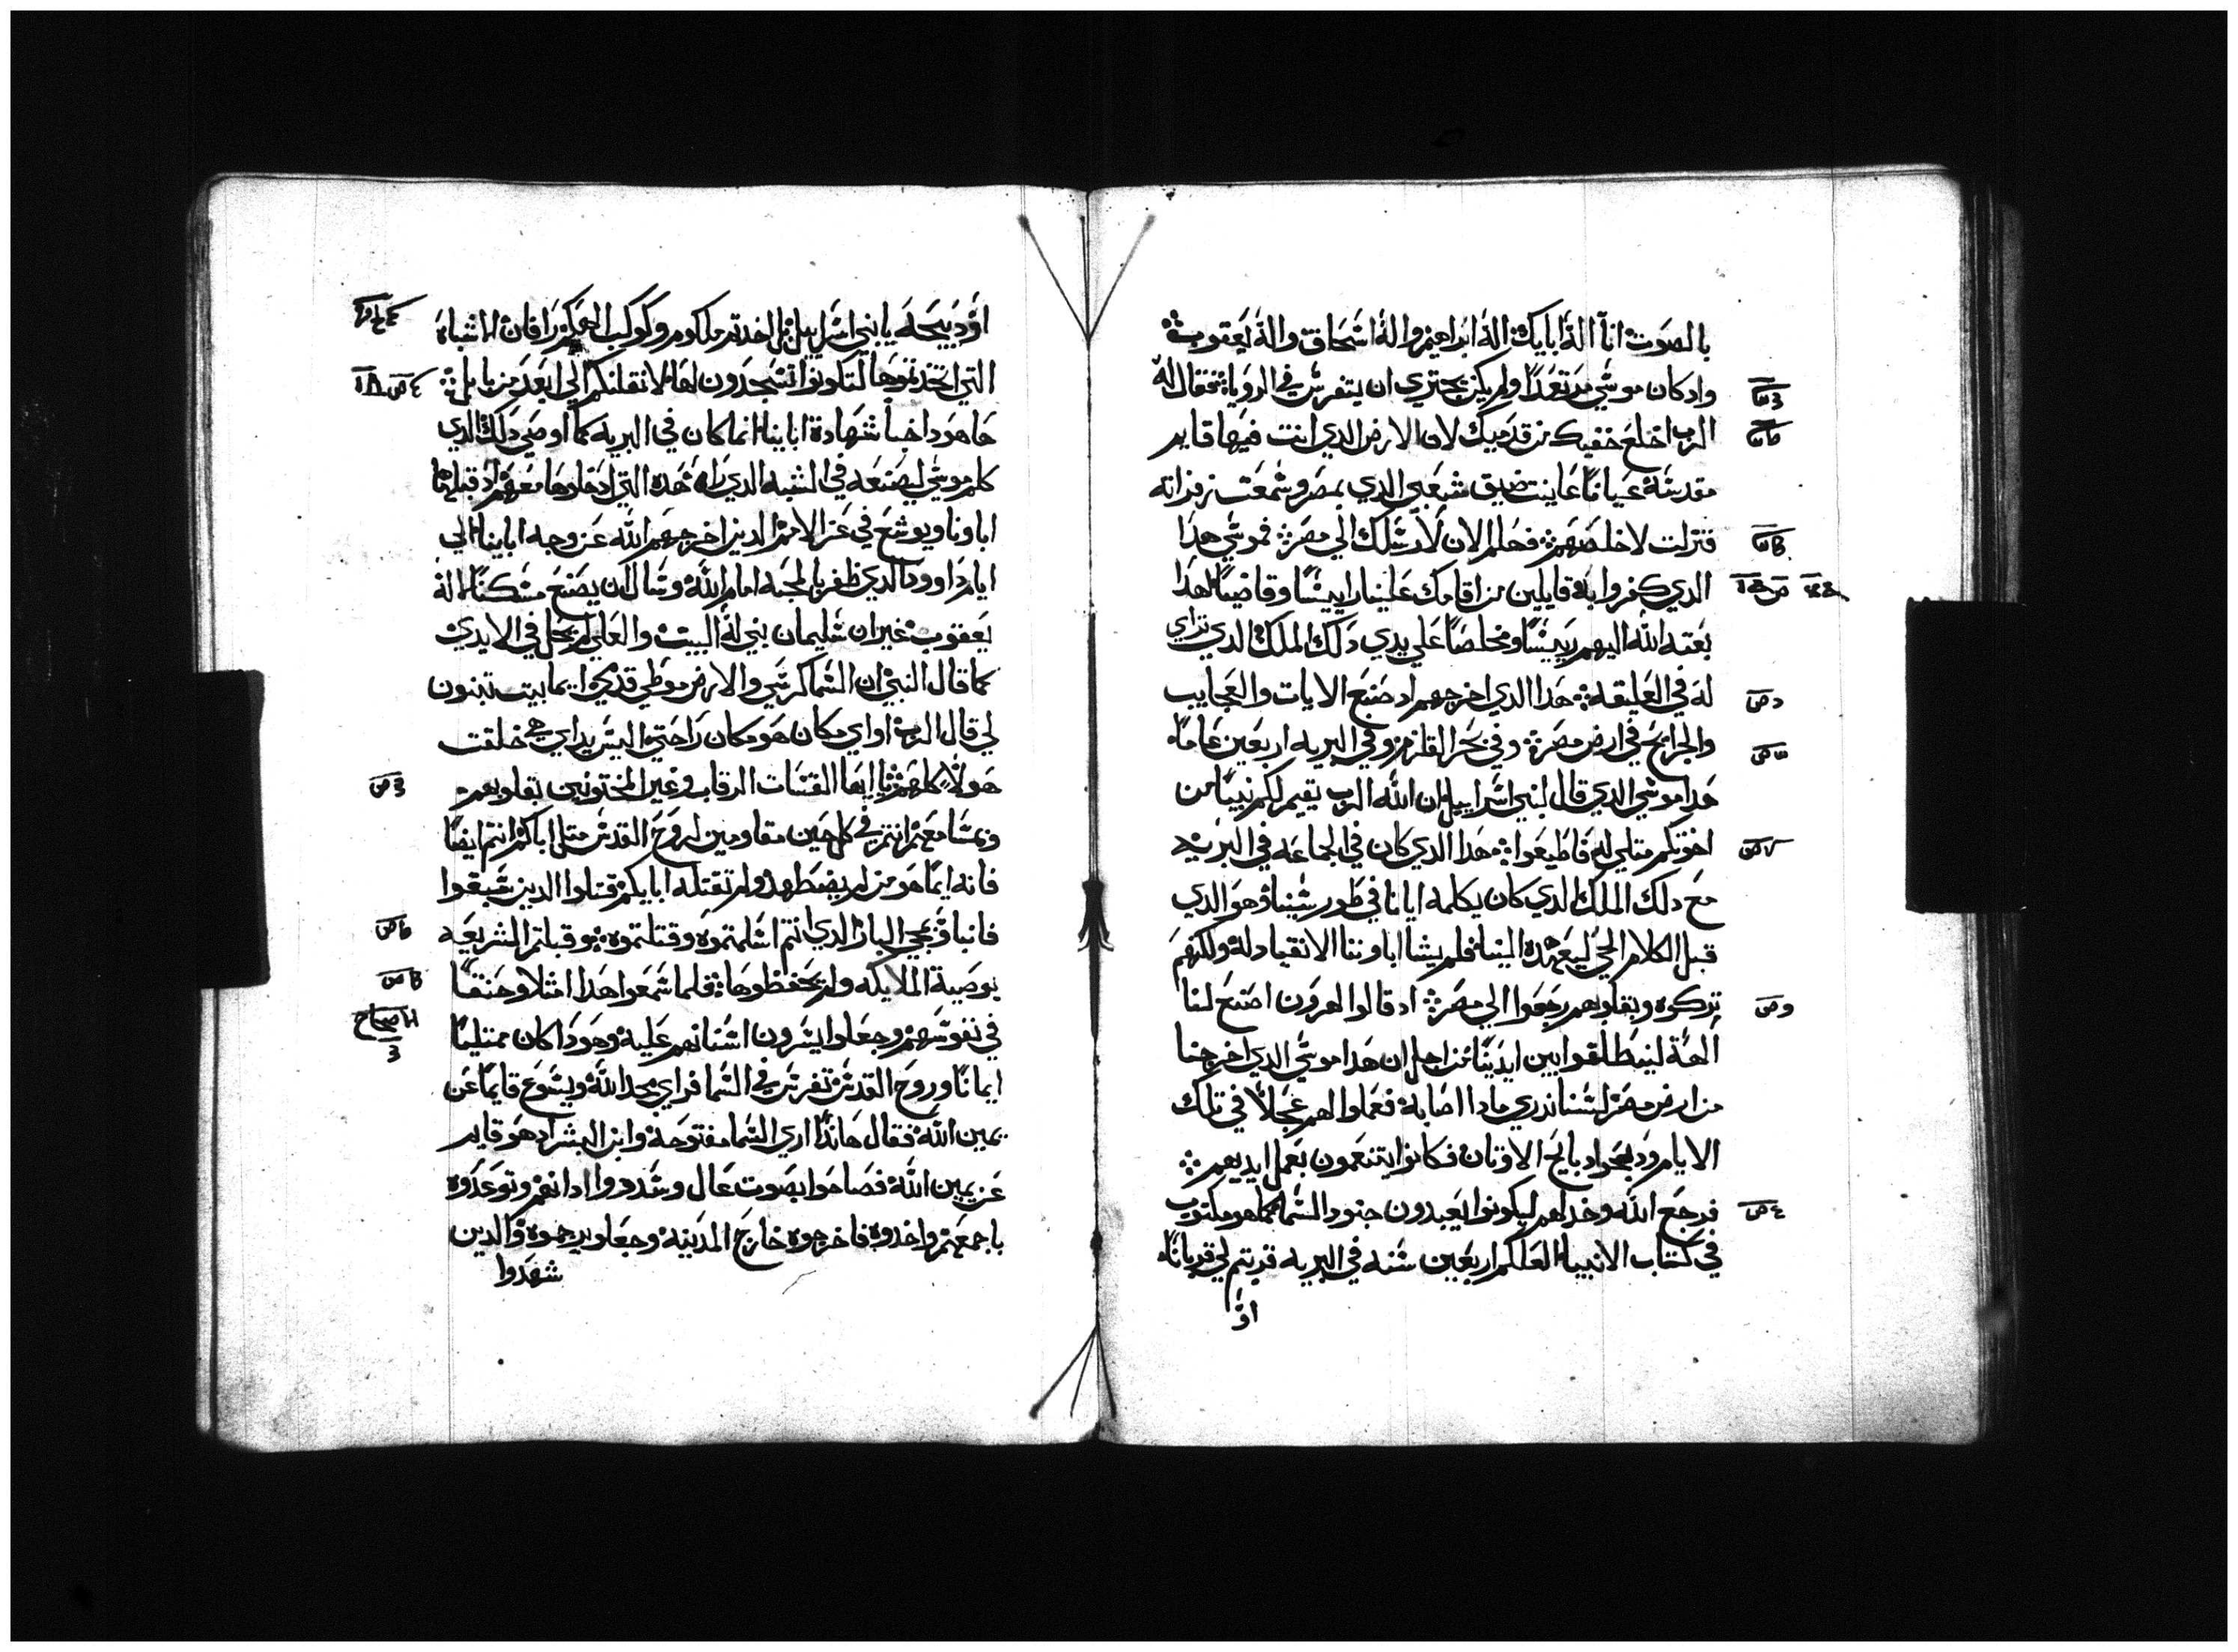 بالصوت انا اله ابايك اله ابراهيم واله اسحاق واله يعقوب
واد كان موسي مرتعدا ولم يكن يجتري ان يتفرس في الرويا فقال له
الرب اخلع خفيك من قدميك لان الارض الدي انت فيها قايم
مقدسة عيانا عاينت ضيق شعبي الدي بمصر وسمعت زفراته
فنزلت لاخلصهم فهلم الان لارسلك الي مصر فموسي هدا
الدي كفروا به قايلين من اقامك علينا راييسا وقاضيا هدا
بعته الله اليهم رييسا ومخلصا علي يدي دلك الملك الدي تراي
له في العليقه هدا الدي اخرجهم اد صنع الايات والعجايب
والجرايح في ارض مصر وفي بحر القلزم وفي البريه اربعين عاما
هدا موسي الدي قال لبني اسراييل ان الله الرب يقيم لكم نبيا من
اخوتكم متلي له فاطيعوا هدا الدي كان في الجماعه في البريه
مع دلك الملك الدي كان يكلمه ايانا في طور سينا وهو الدي
قبل الكلام الحي ليعهده الينا فلم يشا اباوننا الانقياد له ولكنهم
تركوه وبقلوبهم رجعوا الي مصر اد قالوا لهرون اصنع لنا
الهة لينطلقوا بين ايدينا من اجل ان هدا موسي الدي اخرجنا
من ارض مصر لسنا ندري مادا اصابه فعملوا لهم عجلا في تلك
الايام ودبحوا دبايح الاوتان فكانوا يتنعمون بعمل ايديهم
فرجع الله وخدلهم ليكونوا يعبدون جنود السما كما هو مكتوب
في كتاب الانبيا العلكم اربعين سنه في البريه قربتم لي قربانا
او
او دبيحه يا بني اسراييل بل اخدتم ملكوم وكوكب الهكم رافان الاشباه
التي اتخدتموها لتكونوا تسجدون لها لانقلنكم الي ابعد من بابل
ها هودا خبا شهادة اباينا انما كان في البريه كما اوصي دلك الدي
كلم موسي ليصنعه في الشبه الدي راه هده التي ادخلوها معهم اد قبلها
اباونا ويوشع في عز الامم الدين اخرجهم الله عن وجه اباينا الي
ايام داوود الدي ظفر بالمحبه امام الله وسال ان يصنع مسكنا لاله
يعقوب غير ان سليمان بني له البيت والعلي لم يحل في الايدي
كما قال النبي ان السما كرسي والارض موطي قدمي ايما بيت تبنون
لي قال الرب او اي مكان هو مكان راحتي اليس يداي هي خلقت
هولا كلهم يا ايها القسات الرقاب وغير المختونين بقلوبهم
ومسامعهم انتم في كل حين مقاومين لروح القدس متل اباكم انتم ايضا
فانه ايما هو من لم يضطهده ولم تقتله ابايكم قتلوا الدين سبقوا
فانباو بمجي البار الدي انتم اسلمتموه وقتلتموه وقبلتم الشريعه
بوصية الملايكه ولم تحفظوها فلما سمعوا هدا امتلاو حنقا
في نفوسهم وجعلوا يسرون اسنانهم عليه وهودا كان ممتليا
ايمانا وروح القدس تفرس في السما فراي مجد الله ويسوع قايما عن
يمين الله فقال هاندا اري السما مفتوحة وابن البشر اد هو قايم
عن يمين الله فصاحوا بصوت عال وسددوا ادانهم وتوعدوه
باجمعهم واخدوه فاخرجوه خارج المدينه وجعلو يرجموه والدين
شهدوا